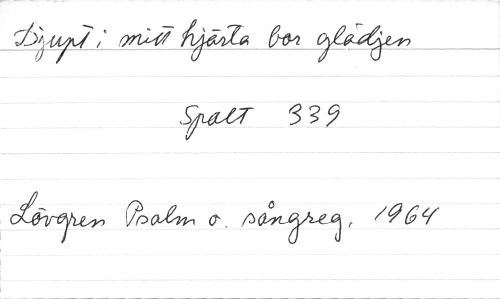 Djupt i mitt hjärta bor glädjen
Spalt 339
Lövgren Psalm o. sångreg. 1964